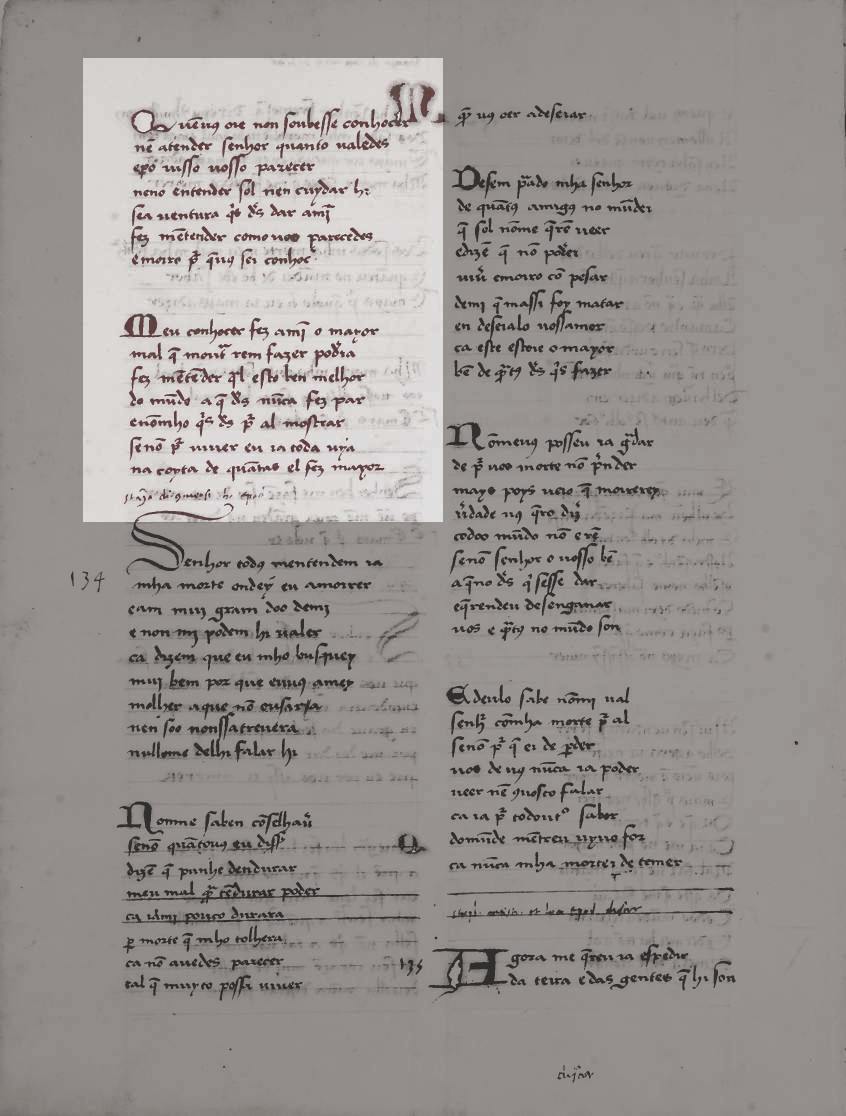 Quẽuus oie non soubesse conhocer
nẽ atender senhor quanto ualedes
epó uisso uosso parecer
nenõ entender sol nen cuydar hi
sea uentura q̃s d̃s dar amĩ
fez mẽtender comouos parecedes
emoiro p̃ q̃uus sei conhoc̃
Meu conhocer fez amĩ o mayor
mal q̃ mout̃ rem fazer podia
fez mẽtẽder q̃l esto ben melhor
do mũdo a q̃ d̃s nũca fez par
enõmho q̃s d̃s p̃ al mostrar
senõ p̃ uiuer eu ia toda uya
na coyta de quãtas el fez mayor
134
Senhor todus mentendem ia
mha morte ondey eu amorrer
eam mui gram doo demi
e non mi podem hi ualer
ca dizem que eu mho busquey
mui bem por que euuus amey
molher aque nõ eusaria
nen soo nonssatreuera
nullome delhi falar hi
Nonme saben cõselhar
senõ quãtouus eu diss̃
dizẽ q̃ punhe dendurar
meu mal q̃ cẽdurar poder
ca iami pouco durara
p̱ morte q̃ mho tolhera
ca nõ auedes parecer
tal q̃ muyto possa uiuer
q̃ uus oer adeseiar
Desem p̃ado mha senhor
de quãtus amigus no mũdei
q̃ sol nõme q̃rẽ ueer
edizẽ q̃ nõ poder
uiũ emoiro cõ pesar
demi q̃ massi foy matar
en deseialo uossamor
ca este estoie omayor
bẽ de q̃tus d̃s q̃s fazer
Nõmeuus posseu ia g̃dar
de p̃ uos morte nõ p̃nder
mays poys ueio q̃ moirerey
ũdade uus q̃ro diz̃
todoo mũdo nõ erẽ
senõ senhor o uosso bẽ
a q̃no d̃s q̃sesse dar
eq̃rendeu desenganar
uos e q̃tus no mũdo son
Edeulo sabe nõmi ual
senh̃ cõmha morte p̃ al
senõ p̃ q̃ ei de p̱der
uos de uus nũca ia poder
ueer nẽ uosco falar
ca ia p̃ todout̃o sabor
domũde mẽtreu uyuo for
ca nũca mha mortei de temer
135
Agora me q̃reu ia espedir
da terra edas gentes q̃ hi son